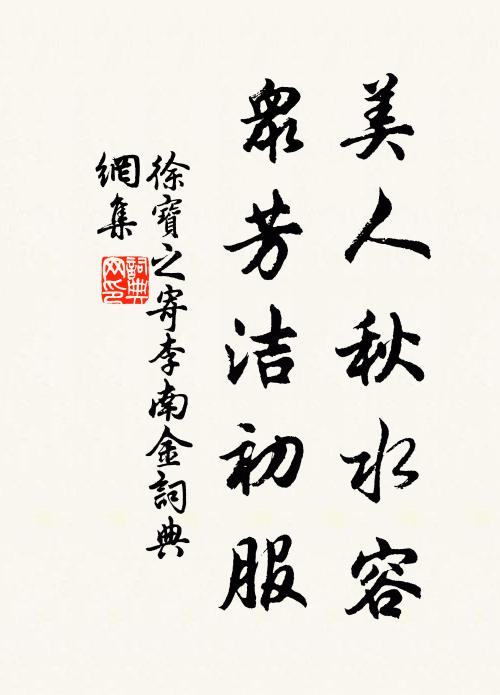 美人秋水容
眾芳洁初服
徐寶之寄李南金詞典
網集
詞典
网印